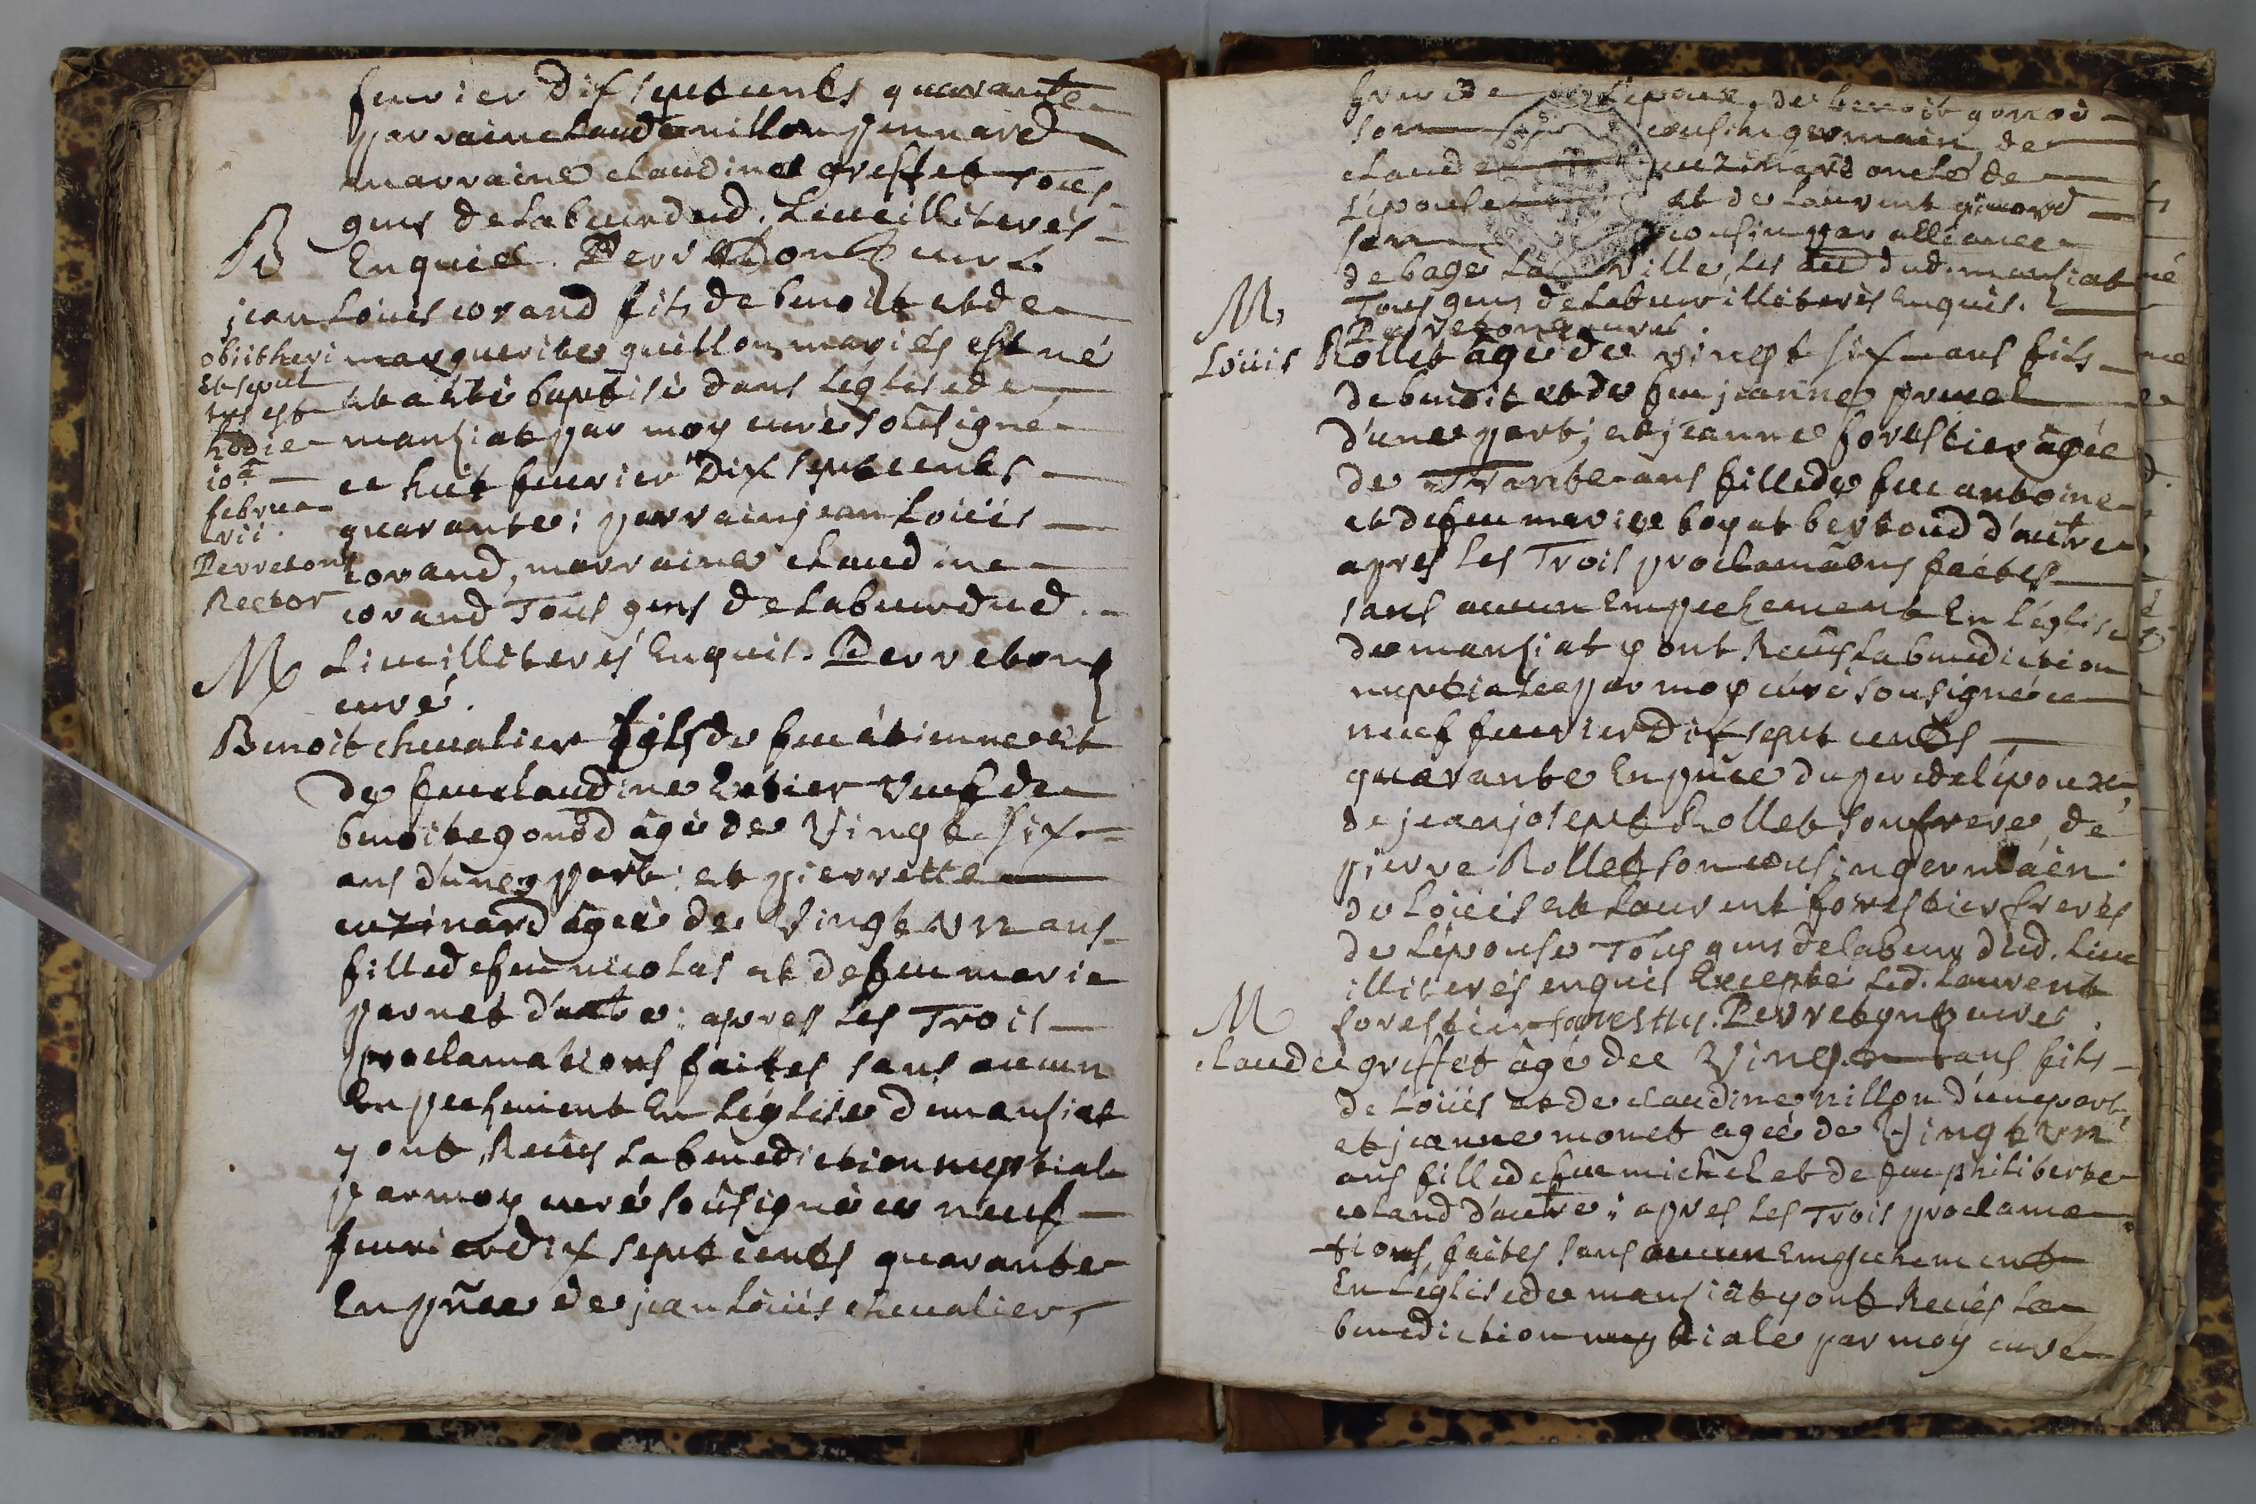 feuvrier dix sept cents quarante
parrain claude nillon
marraine claudine greffet Tous
gens de labeur dud. Lieu illiterés
B
Enquis. Perreton curé.
jean Loüis corand fils de benoit et de
marguerite guillon mariés est né
et a été baptisé dans L'eglise de
mansiat par moy curé soûsigné
ce huit feuvrier Dix sept cents
quarante; parrain jean Loüis
corand, marraine claudine
corand Tous gens de Labeur dud.
Lieu illiterés Enquis. Perreton
curé.
obiit heri
et sepul
tus est
hodie
10a
februa
rii.
Perreton
Rector
M
Benoit chevalier fils de feu étienne et
de feue claudine veuf de
benoite gonod âgé de Vingt six
ans d'une part; et pierrette
cuzinard âgée de Vingt un ans
fille de feu nicolas et de feu marie
pernet d'autre; apres Les Trois
proclamations faites sans aucun
Enpechement En L'eglise de mansiat
y ont Reçus La benediction nuptiale
par moy curé soûsigné ce neuf
feuvrier dix sept cents quarante
En pñce de jean Loüis chevalier,
frere de L'epoux, de benoit gonod
son cousin germain de
claude cuzinard oncle de
L'epouse et de Laurent
son cousin par alliance
de bagé La Ville, Les dud. mansiat
Tous gens de Labeur illiterés Enquis.
Perreton curé.
M
Loüis Rollet âgé de vingt six ans fils
de benoit et de feu jeanne
d'une part; et jeanne forestier âgée
de Trante ans fille de feu antoine
et de feu marie boyat bertoud d'autre
apres Les Trois proclamãons faites
sans aucun Empechement En L'eglise
de mansiat y ont Reçus La benediction
nuptiale par moy curé sousigné ce
neuf feuvrier Dix sept cents
quarante En pñce du pere de l'epoux,
de jean josept Rollet son frere, de
pierre Rollet son cousin germain
de Loüis et Laurent forestier freres
de L'epouse Tous gens de labeur dud. Lieu
illiterés enquis Excepté Led. Laurent
forestier Perreton curé.
M
claude greffet âgé de Vingt ans fils
de Loüis et de claudine nillon d'une part,
et jeanne monet agée de Vingt un
ans fille de feu michel et de feu philiberte
coland d'autre; apres Les Trois proclama
tions, faites sans aucun Empechement
En L'eglise de mansiat y ont Reçus La
benediction nuptiale par moy curé